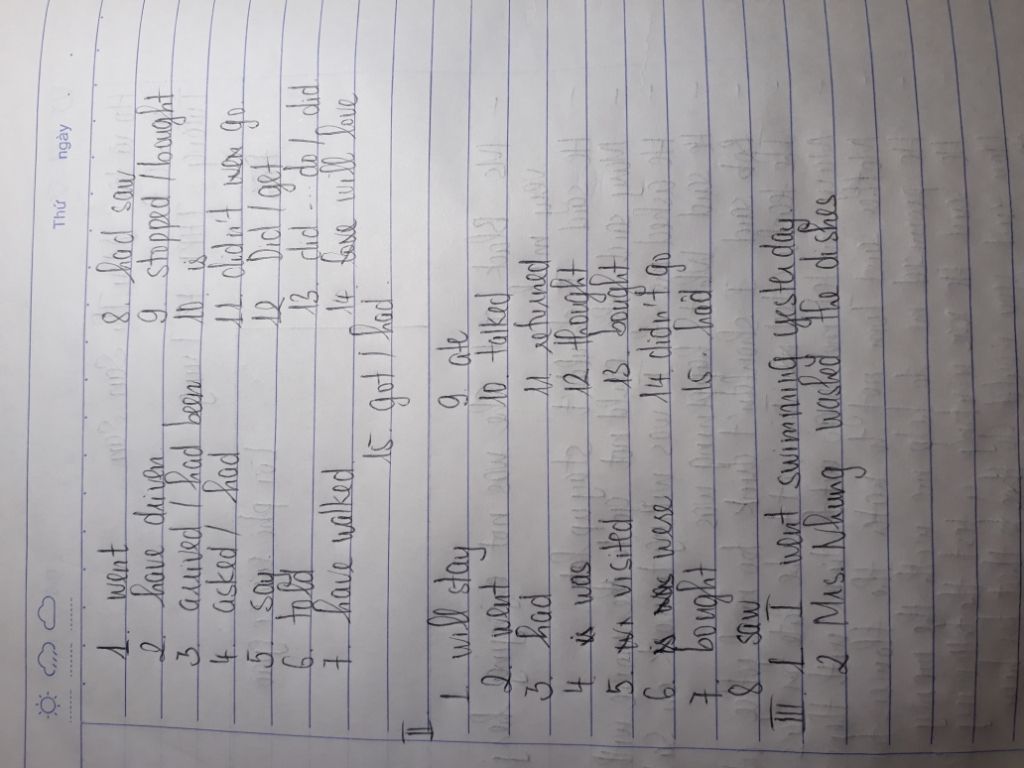 Thứ ngày
1 went 8 had saw
2 have driven 9 stopped / bought
3. arrived / had been 10 is
4. asked / had 11. didn't go
5 say 12 Did / get
6. told 13 did ... do / did
7 have walked 14 will
15. got / had
II
1 will stay 9 ate
2 went 10 talked
3 had 11 returned
4 is was 12 thought
5 visited 13 bought
6 is was were 14 didn't go
7 bought 15. had
8 saw
III 1. I went swimming yesterday
2 Mrs. Nhung washed the dishes